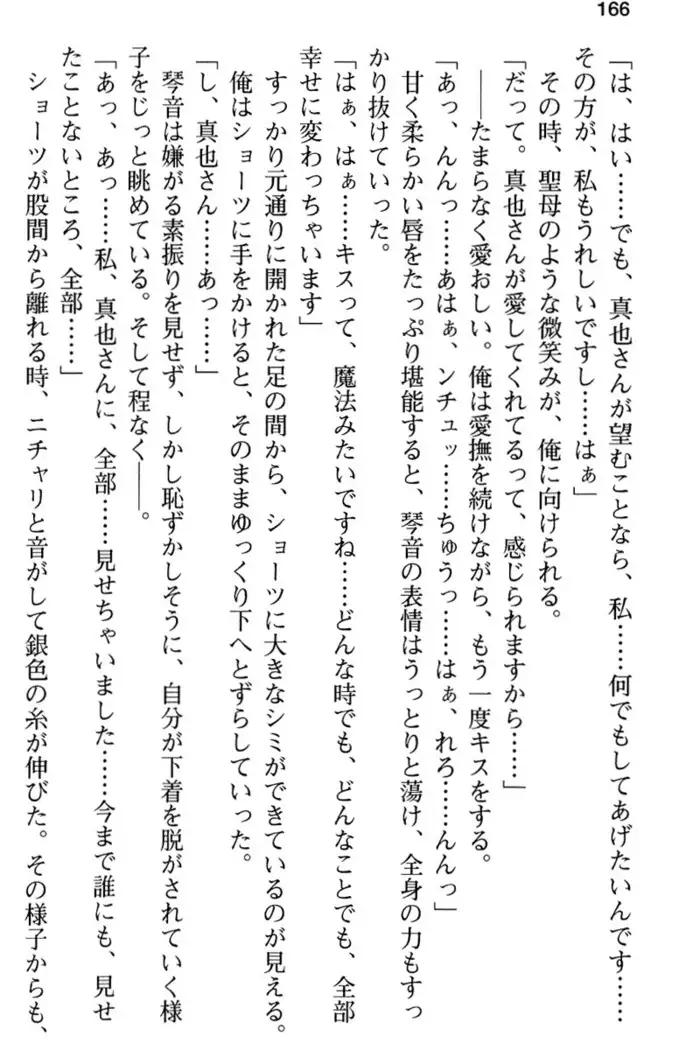 166
「は、はい……でも、真也さんが望むことなら、私……何でもしてあげたいんです……
その方が、私もうれしいですし……はぁ」
その時、聖母のような微笑みが、俺に向けられる。
「だって。真也さんが愛してくれてるって、感じられますから……」
――たまらなく愛おしい。俺は愛撫を続けながら、もう一度キスをする。
「あっ、んんっ……あはぁ、ンチュッ……ちゅうっ……はぁ、れろ……んんっ」
甘く柔らかい唇をたっぷり堪能すると、琴音の表情はうっとりと蕩け、全身の力もすっ
かり抜けていった。
「はぁ、はぁ……キスって、魔法みたいですね……どんな時でも、どんなことでも、全部
幸せに変わっちゃいます」
すっかり元通りに開かれた足の間から、ショーツに大きなシミができているのが見える。
俺はショーツに手をかけると、そのままゆっくり下へとずらしていった。
「し、真也さん……あっ……」
琴音は嫌がる素振りを見せず、しかし恥ずかしそうに、自分が下着を脱がされていく様
子をじっと眺めている。そして程なく――。
「あっ、あっ……私、真也さんに、全部……見せちゃいました……今まで誰にも、見せ
たことないところ、全部……」
ショーツが股間から離れる時、ニチャリと音がして銀色の糸が伸びた。その様子からも、